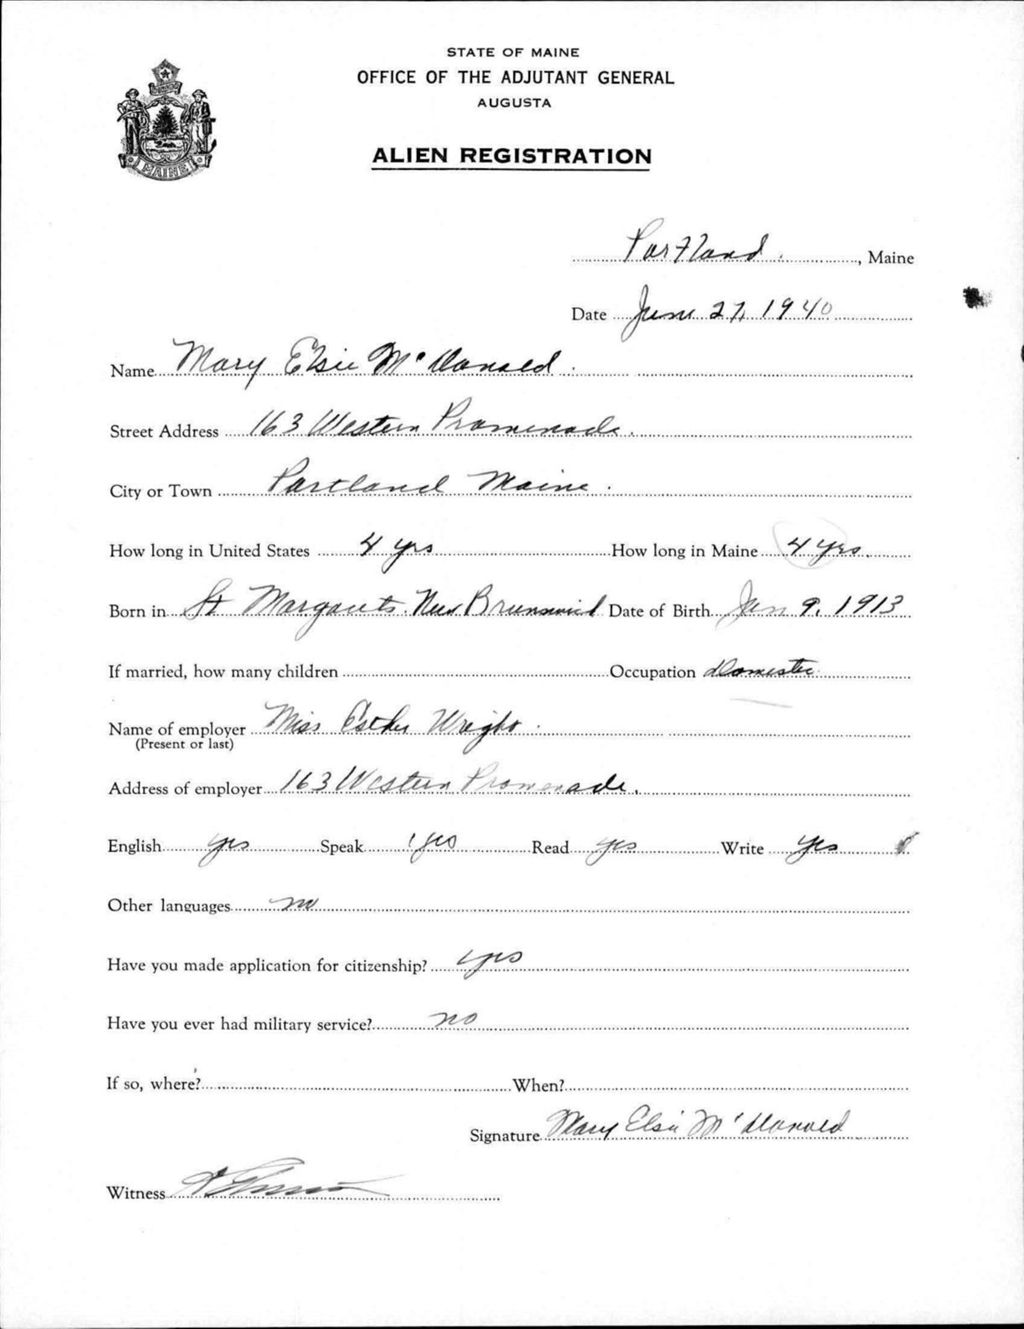 STATE OF MAINE
OFFICE OF THE ADJUTANT GENERAL
AUGUSTA
ALIEN REGISTRATION
MAINE
Portland, Maine
Date June 27, 1940
Name Mary Elsie McDonald.
Street Address 163 Western Promenade.
City or Town Portland Maine.
How long in United States 4 yrs How long in Maine 4 yrs.
Born in St Margarets New Brunswick Date of Birth Jan 9, 1913
If married, how many children Occupation Domestic
Name of employer Miss Esther Wright.
(Present or last)
Address of employer 163 Western Promenade.
English yes Speak yes Read yes Write Yes
Other languages no
Have you made application for citizenship? yes
Have you ever had military service? no
If so, where? When?
Signature Mary Elsie McDonald
Witness